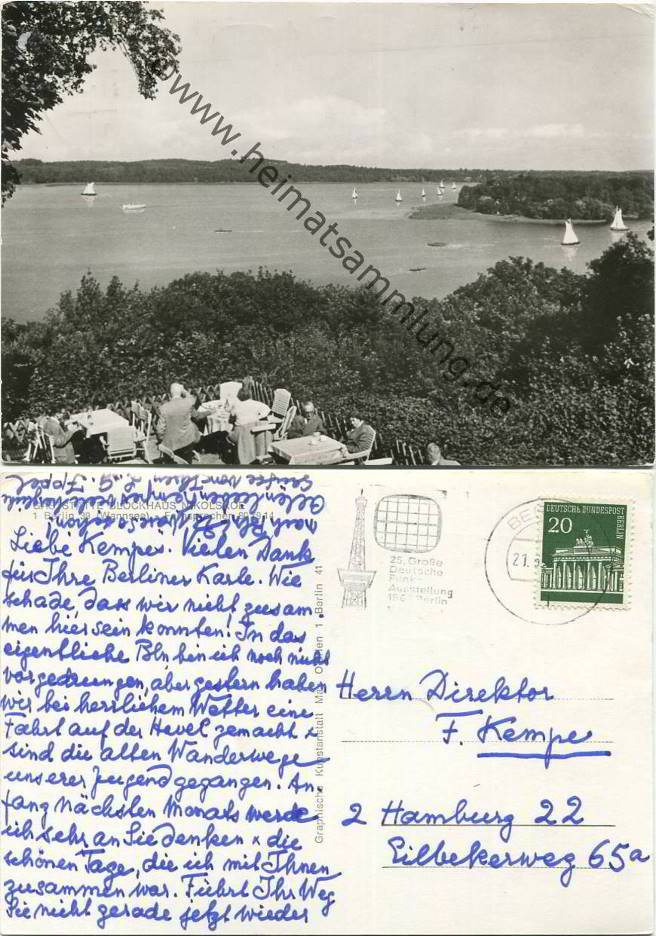 www.heimatsammlung.de
BLOCKHAUS NIKOLSKOE
1 Berlin 39 (Wannsee)
Liebe Kempes. Vielen Dank
für Ihre Berliner Karte. Wie
schade, dass wir nicht zusam,
men hier sein konnten! In das
eigentliche Bln bin ich noch nicht
vorgedrungen, aber gestern haben
wir bei herrlichem Wetter eine
Fahrt auf der Havel gemacht &
sind die alten Wanderwege
unserer Jugend gegangen. An,
fang nächsten Monats werde
ich sehr an Sie denken & die
schönen Tage, die ich mit Ihnen
zusammen war. Führt Ihr Weg
Sie nicht gerade jetzt wieder
nach
Allen lieben Kempes
Grüsse von Ihrem
Graphische Kunstanstalt 1 Berlin 41
25. Große
Deutsche
Funk-
Ausstellung
Berlin
BERLIN
21.
DEUTSCHE BUNDESPOST BERLIN
20
Herrn Direktor
F. Kempe
2 Hamburg 22
Eilbekerweg 65a